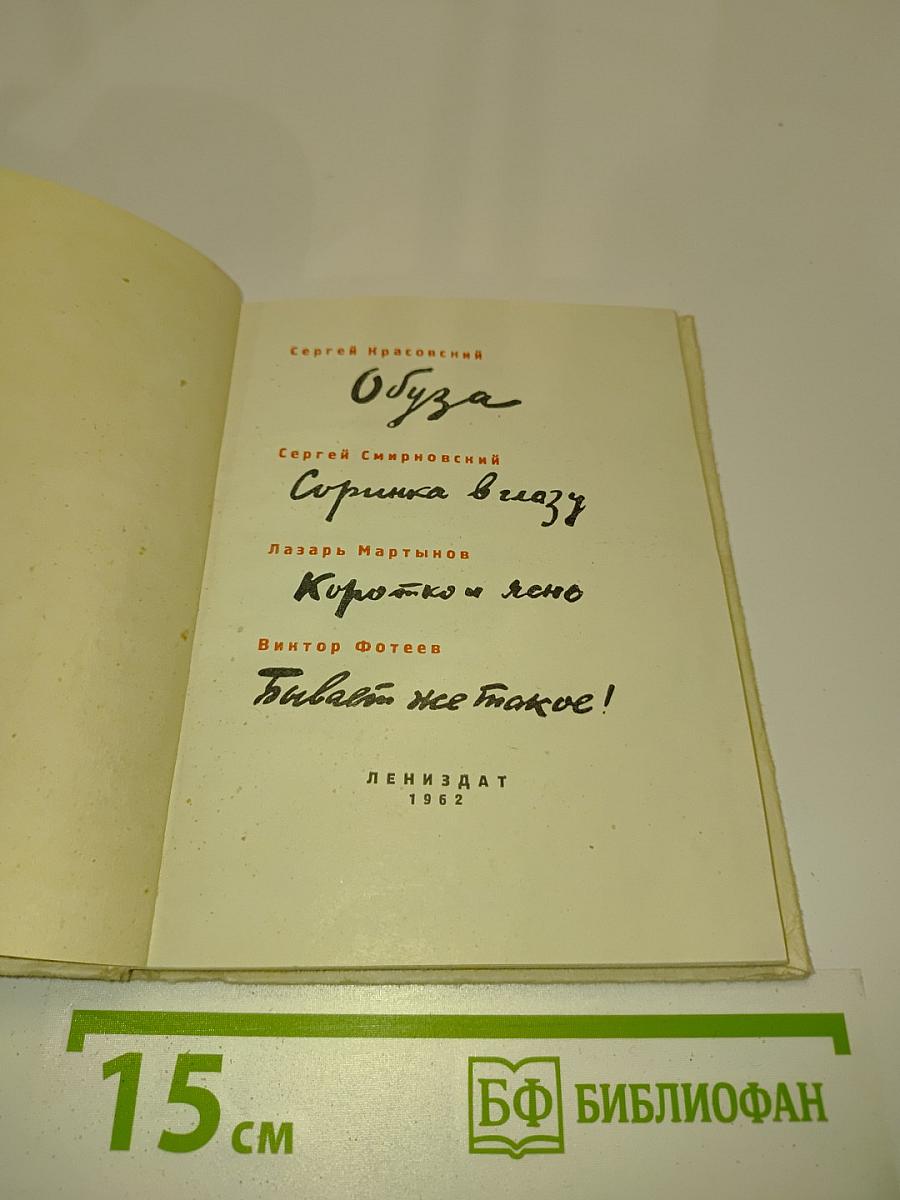 Сергей Красовский
Обуза
Сергей Смирновский
Соринка в глазу
Лазарь Мартынов
Коротко и ясно
Виктор Фотеев
Бывает же такое!
ЛЕНИЗДАТ
1962
15 см
БФ БИБЛИОФАН